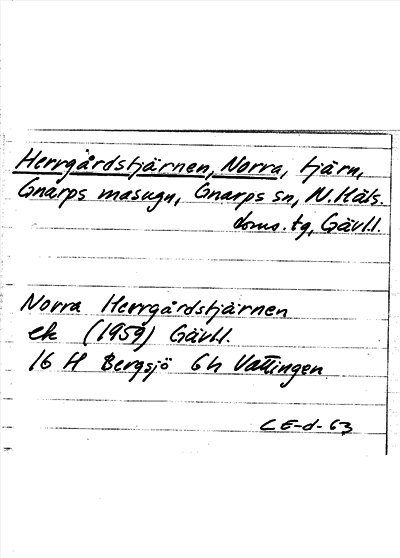 Herrgårdstjärnen, Norra, tjärn,
Gnarps masugn, Gnarps sn, N. Häls.
doms. tg, Gävl.l.
Norra Herrgårdstjärnen
ek (1959) Gävl.l.
16 H Bergsjö 6h Vattingen
CE-d-63